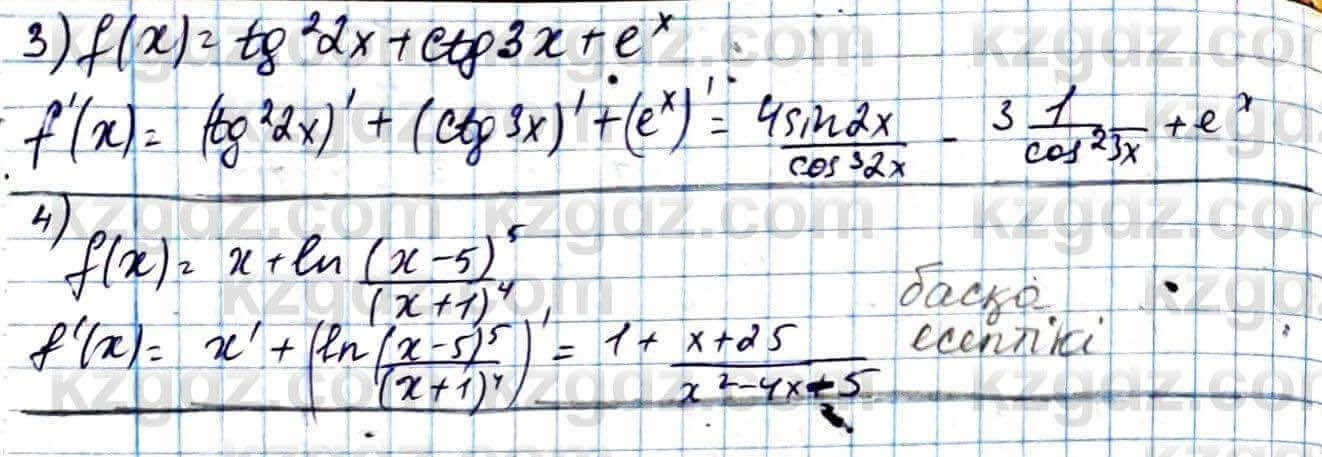 3) f(x) = tg²2x + ctg3x + eˣ
f'(x) = (tg²2x)' + (ctg3x)' + (eˣ)' = 4sin2x/cos³2x - 3 1/cos²3x + eˣ
4)
f(x) = x + ln (x-5)⁵/(x+1)⁴
f'(x) = x' + (ln (x-5)⁵/(x+1)⁴)' = 1 + x+25/x²-4x-5
басқа
есептікі
kzgdz.com kzgdz.com kzgdz.com